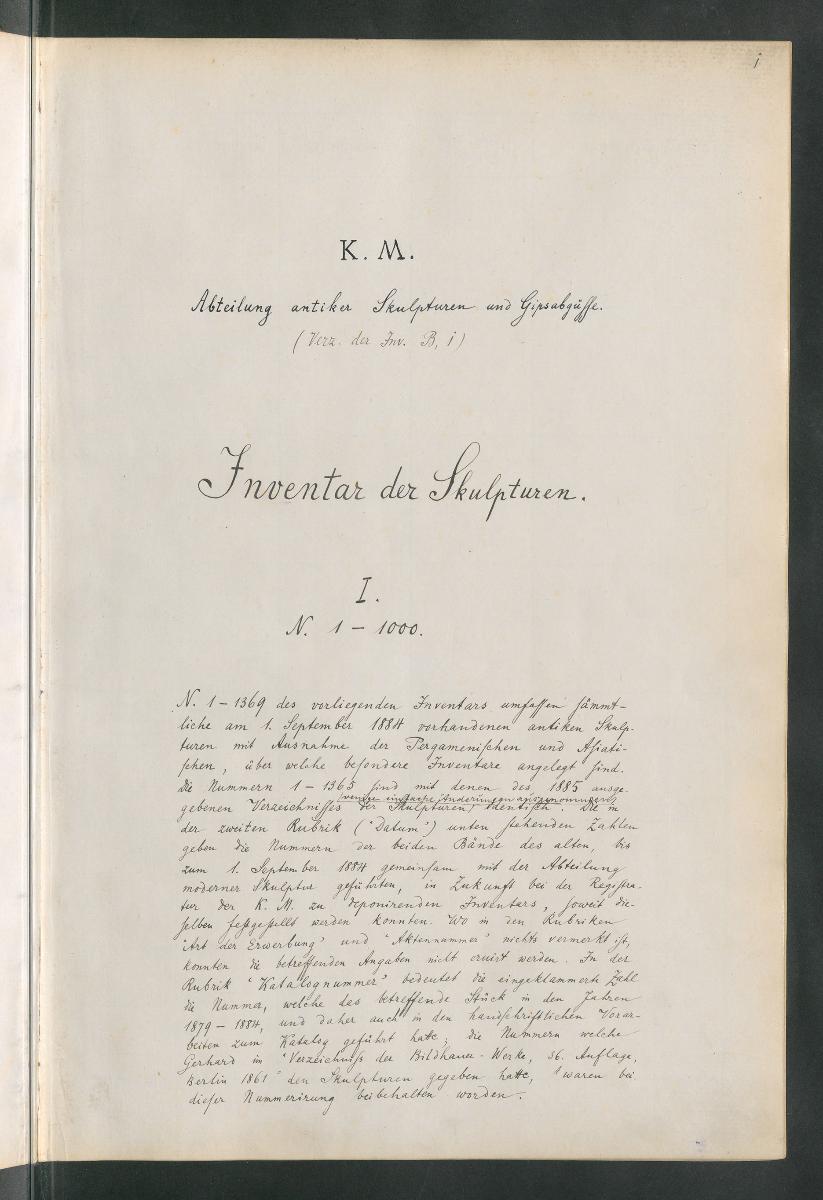 1
K. M.
Abteilung antiker Skulpturen und Gipsabgüsse.
(Verz. der Inv. B, 1)
Inventar der Skulpturen.
I.
N. 1 – 1000.
N. 1 – 1369 des vorliegenden Inventars umfassen sämmt-
liche am 1. September 1884 vorhandenen antiken Skulp-
turen mit Ausnahme der Pergamenischen und Asiati-
schen, über welche besondere Inventare angelegt sind.
Die Nummern 1 – 1365 sind mit denen des 1885 ausge-
(wenige einfache Änderungen ausgenommen)
gebenen Verzeichnisses der Skulpturen identisch. Die in
der zweiten Rubrik ("Datum") unten stehenden Zahlen
geben die Nummern der beiden Bände des alten, bis
zum 1. September 1884 gemeinsam mit der Abteilung
moderner Skulptur geführten, in Zukunft bei der Registra-
tur der K. M. zu deponirenden Inventars, soweit die-
selben festgestellt werden konnten. Wo in den Rubriken
"Art der Erwerbung" und "Aktennummer" nichts vermerkt ist,
konnten die betreffenden Angaben nicht eruirt werden. In der
Rubrik "Katalognummer" bedeutet die eingeklammerte Zahl
die Nummer, welche das betreffende Stück in den Jahren
1879 – 1884, und daher auch in den handschriftlichen Vorar-
beiten zum Katalog geführt hatte; die Nummern welche
Gerhard im "Verzeichniß der Bildhauer-Werke, 36. Auflage,
Berlin 1861" den Skulpturen gegeben hatte, waren bei
dieser Nummerirung beibehalten worden.